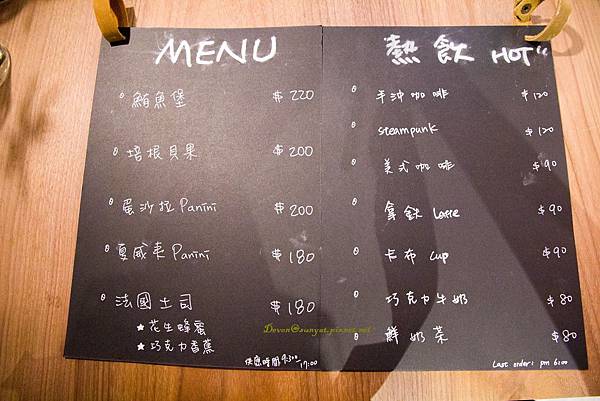 MENU
鮪魚堡 $220
培根貝果 $200
蛋沙拉 Panini $200
夏威夷 Panini $180
法國土司 $180
★花生蜂蜜
★巧克力香蕉
供應時間 9:300~17:00
熱飲 HOT
手沖咖啡 $120
steampunk $120
美式咖啡 $90
拿鉄 Latte $90
卡布 cup $90
巧克力牛奶 $80
鮮奶茶 $80
Last order: pm 6:00
Devon@sunyat.pixnet.net